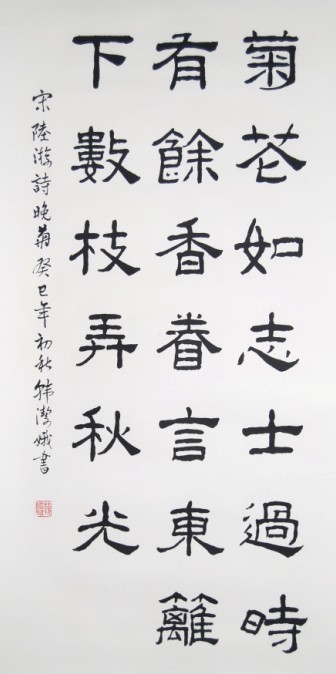 菊花如志士過時
有餘香眷言東籬
下數枝弄秋光
宋陸游詩晚菊癸巳年初秋韩潔娥書